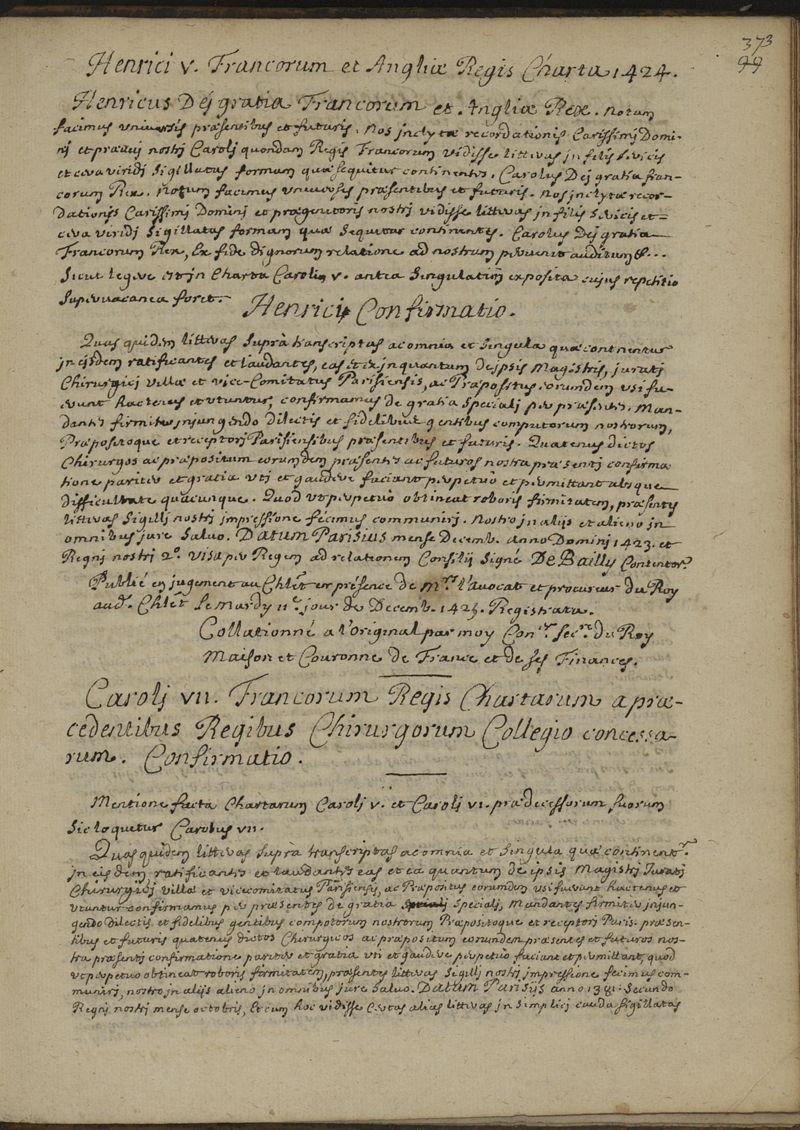 373
99
Henrici v. Francorum et Angliæ Regis Charta 1424.
Henricus Dej gratia Francorum et Angliæ Rex. Notum
facimus universis præsentibus et futuris. Nos jnclytæ recordationis Carissimj Domi-
nj et proavi nostrj Carolj quondam Regis Francorum vidisse litteras jn filis sericis
et cera viridj sigillatas formam quæ sequitur continentes. Carolus Dej gratia fran-
corum Rex. Notum facimus universes præsentibus et futuris. Nos jnclytæ recor-
Dationis Carissimj Dominj et progenitoris nostrj vidisse litteras jn filis sericis et
cera viridj sigillatas formam quæ sequetur continentes. Carolus Dej gratia
Francorum Rex, Ex fide dignorum relatione ad nostrum pervenit auditum &...
Sicut legere est jn Charta Carolj v. antea singulatim exposita cujus repetitio
supervacanea foret.
Henrici Confirmatio.
Quas quidem litteras supra transcriptas ac omnia et singula quæ continentur
jn eisdem ratificantes et laudantes, eas et ex jnquantum de jpsis Magistrj, juratj
Chirurgicj villæ et vice-Comitatus Parisiensis, ac Præpositus eorumdem usi fu-
erunt hactenus et utuntur, confirmamus de gratia specialj per præsentes. Man-
dantes firmiter jnjungendo dilectis et fidelibus gentibus computorum nostrorum,
Præpositoque et receptorj Parisiensibus præsentibus et futuris. Quatenus dictos
Chirurgos ac præpositum eorumdem præsentes ac futuros nostra præsentj confirma
tione pariter et gratia utj et gaudere faciant perpetuò et permittant absque
difficultate quacunque. Quod ut perpetuò obtineat roboris firmitatem, præsentes
litteras sigillj nostrj jmpressione fecimus communirj. Nostro jn alijs et alieno jn
omnibus jure salvo. Datum Parisius mense Decemb. anno Dominj 1423. et
Regnj nostrj 2º. Visa per Regem ad relationem Consilij Signé De Bailly Contentor
Publié en jugement au Chlêt en présence de Mrs l'avocat et procureur du Roy
aud. Chlêt le Mardy 11e jour de Decemb. 1425. Registrata.
Collationné a l'original par moy Conr. Secre. du Roy
Maison et Couronne de France et de ses Finances.
Carolj vii. Francorum Regis Chartarum a præ-
cedentibus Regibus Chirurgorum Collegio concessa-
rum. Confirmatio.
Mentione facta Chartarum Carolj v. et Carolj vi. prædecessorum suorum
sic loquitur Carolus vii.
Quas quidem litteras supra transcriptas ac omnia et singula quæ continentr.
jn eisdem ratificantes et laudantes eas et ea quantum de ipsis Magistrj Juratj
Chirurgicj villæ et vicecomitatus Parisiensis, ac Præpositus eorumdem usi fuerunt hactenus et
utuntur confirmamus per præsentes de gratia specialj, Mandantes firmiter jnjun-
gendo dilectis et fidelibus gentibus compotorum nostrorum Præpositoque et receptorj Paris. præsen-
tibus et futuris quatenus dictos Chirurgicos ac præpositum eorumdem præsentes et futuros nos-
tra præsentj confirmatione pariter et gratia uti et gaudere perpetuo faciant et permittant, quod
ut perpetuo obtineat roboris firmitatem, præsentes litteras sigillj nostrj jmpressione fecimus com-
munirj, nostro jn alijs alieno jn omnibus jure salvo. Datum Parisijs anno 1381. Secundo
Regnj nostrj mense octobris, Et cum hoc vidisse certas alias litteras jn simplicj cauda sigillatas